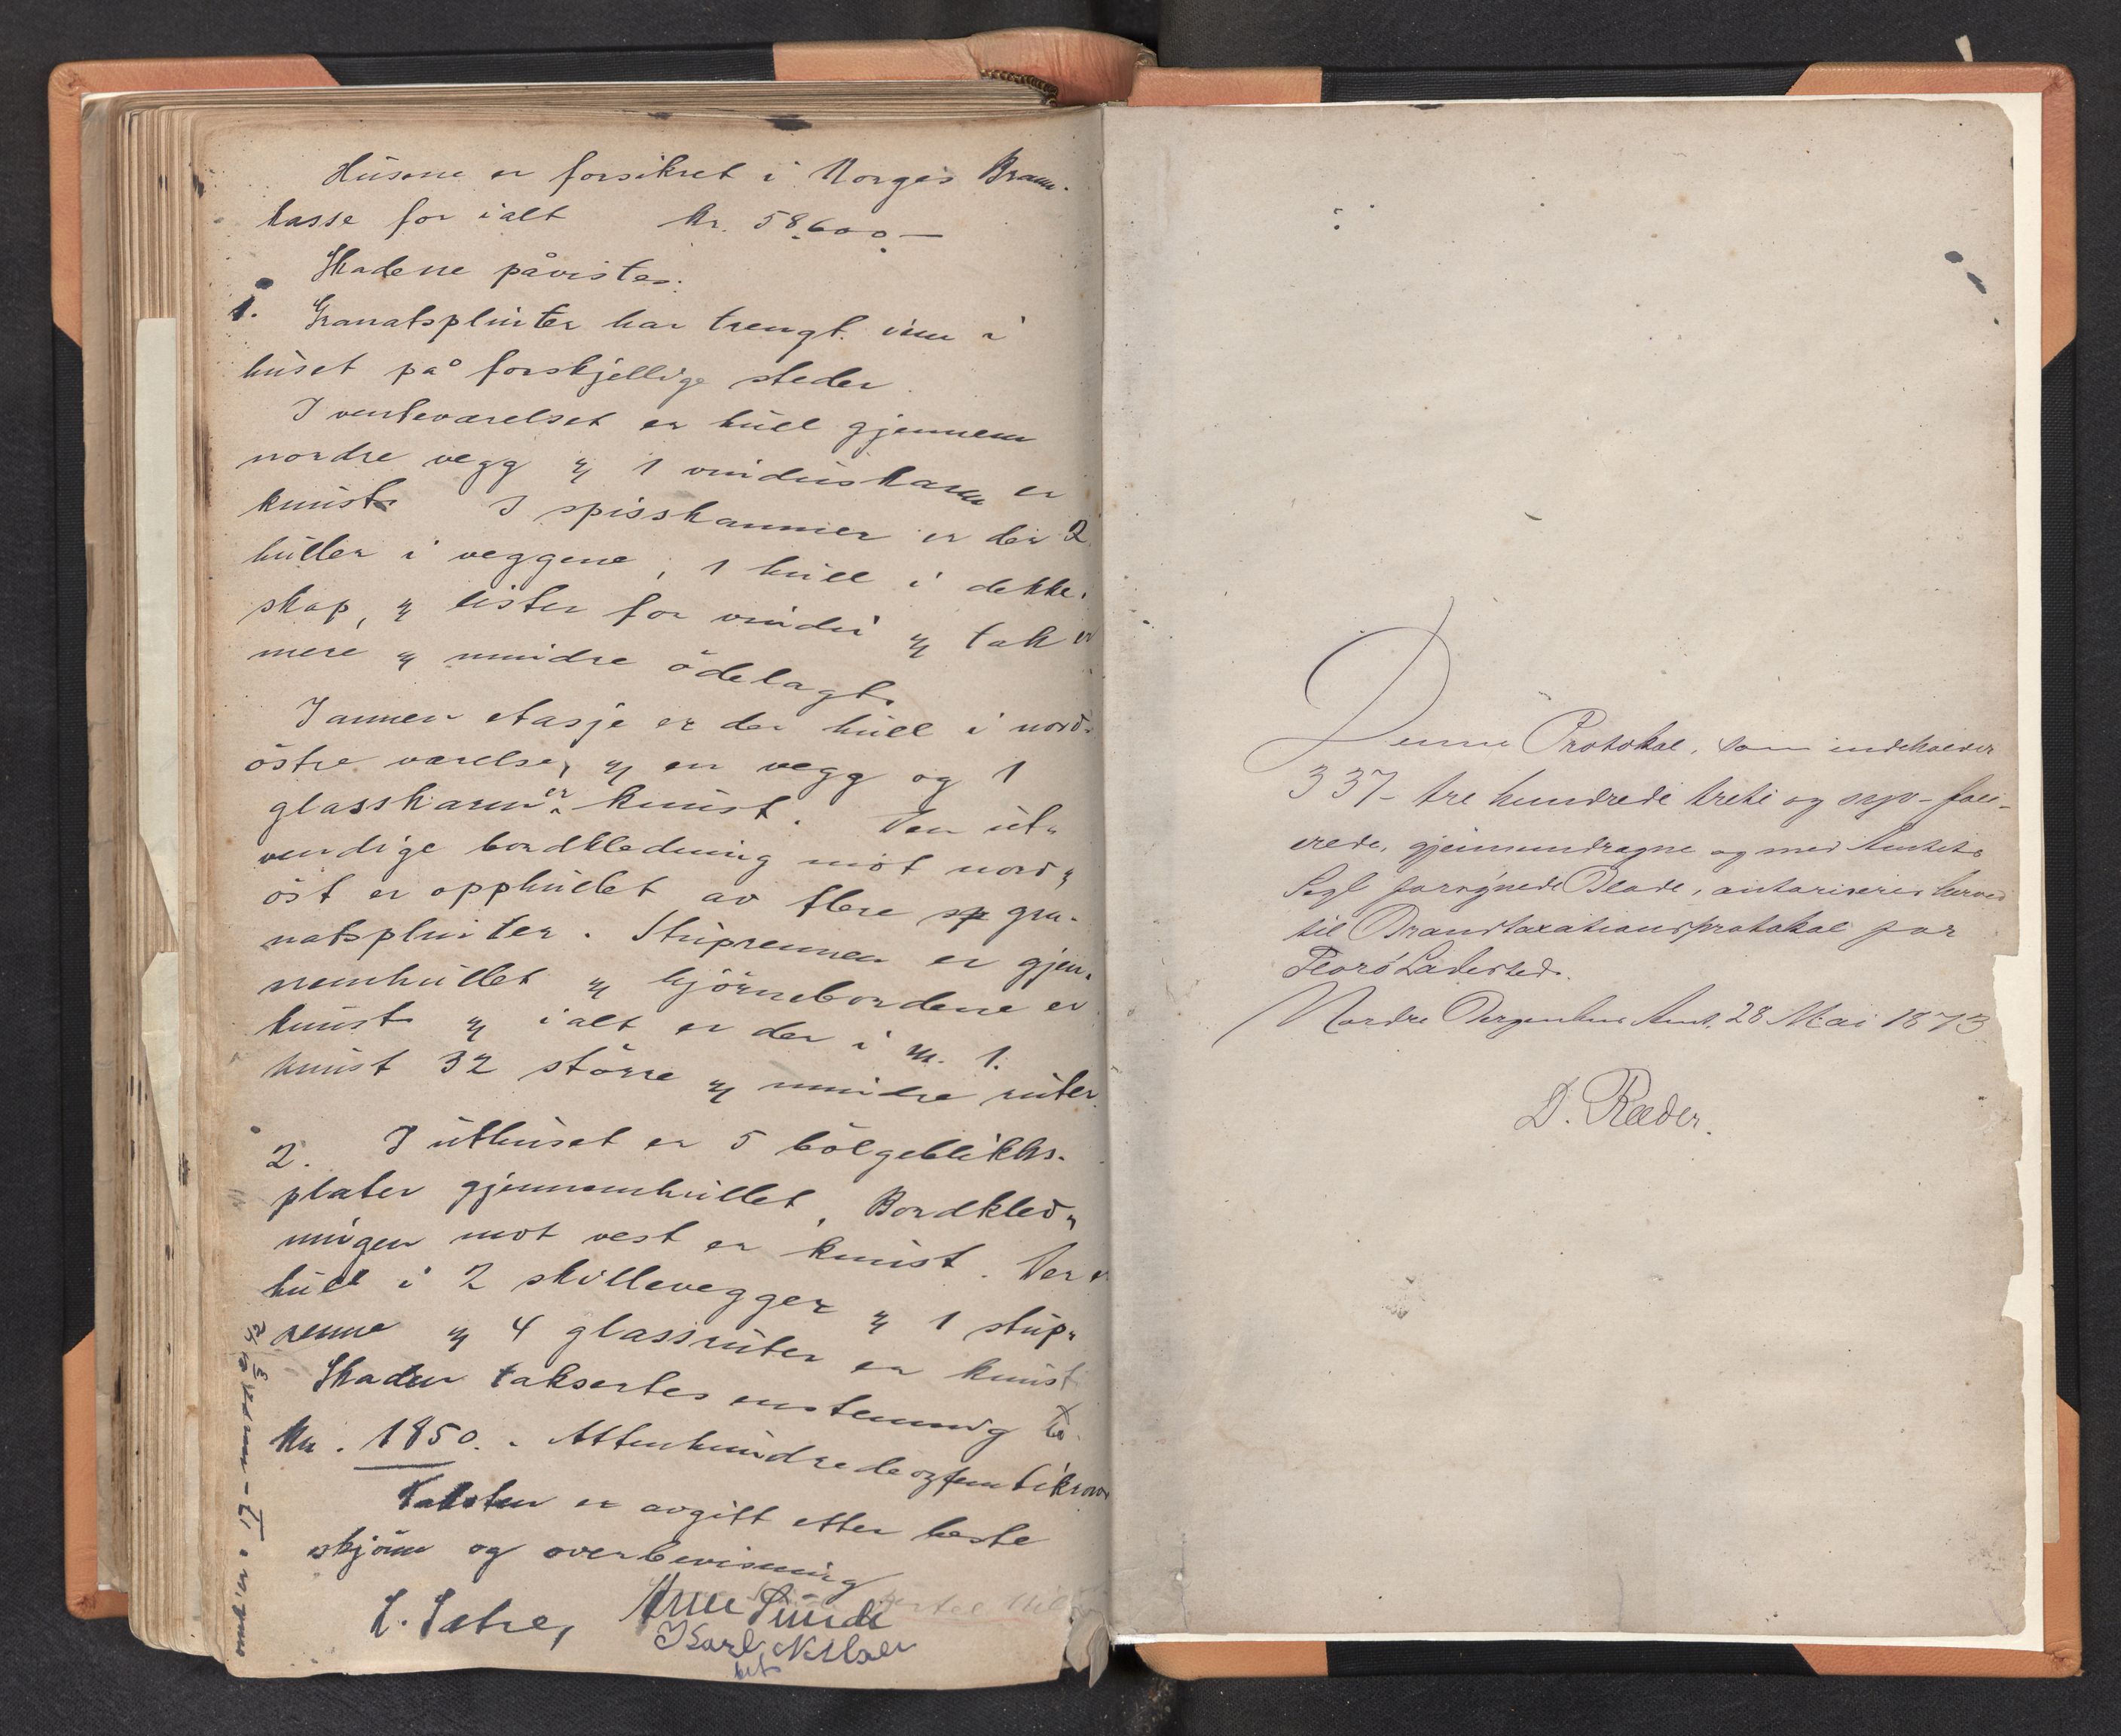 Husene er forsikret i Norges Brann-
kasse for ialt kr. 58.600.-
Skadene påvistes:
1. Granatsplinter har trengt inn i
huset på forskjellige steder.
I venteværelset er hull gjennem
nordre vegg og 1 vinduskarm er
knust. I spisskammer er der 2
huller i veggene, 1 hull i dekke-
skap, og lister for vindu og tak er
mere og mindre ödelagt.
I annen etasje er der hull i nord-
östre værelse, og en vegg og 1
glasskarm er knust. Den ut-
vendige bordkledning mot nord-
öst er opphullet av flere sp gra-
natsplinter. Stuprennen er gjen-
nemhullet og hjörnebordene er
knust og ialt er der i m. 1.
knust 32 större og mindre ruter.
2. I uthuset er 5 bölgeblikks-
plater gjennemhullet. Bordkled-
ningen mot vest er knust. Der er
hull i 2 skillevegger og 1 stup-
renne og 4 glassruter er knust
Skaden taksertes enstemmig til
kr. 1850.- Attenhundredeogfemtikroner
Taksten er avgitt etter beste
skjönn og overbevisning
L. Sætre, Arne Sunde
Karl Nilsen
Denne Protokol, som indeholder
337 - tre hundrede treti og syv - foli-
erede, gjennemdragne og med Amtets
Segl forsynede Blade, autoriseres herved
til Brandtaxationsprotokol for
Florö Ladested.
Nordre Bergenhus Amt, 28 Mai 1873
D. Ræder.